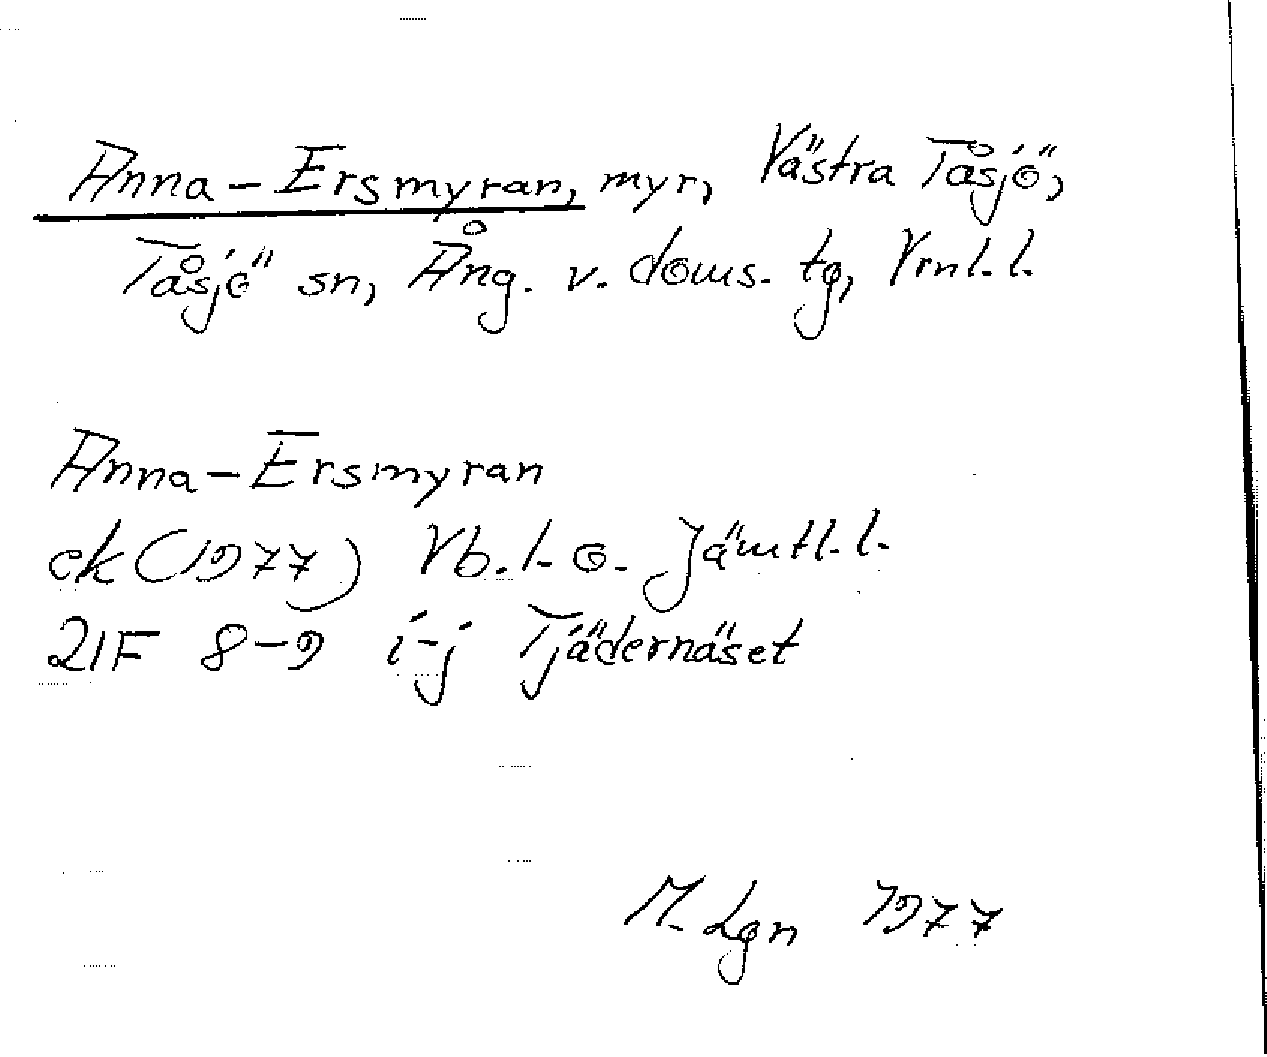 Anna-Ersmyran, myr, Västra Tåsjö,
Tåsjö sn, Ång. v. doms. tg, Vrnl. l.
Anna-Ersmyran
ek (1977) Vb. l. o. Jämtl. l.
21F 8-9 i-j Tjädernäset
M. Lgn 1977